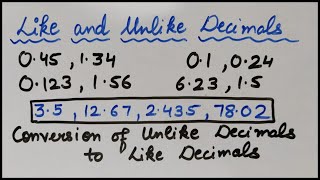 Like and Unlike Decimals
0.45, 1.34 0.1, 0.24
0.123, 1.56 6.23, 1.5
3.5, 12.67, 2.435, 78.02
Conversion of Unlike Decimals
to Like Decimals